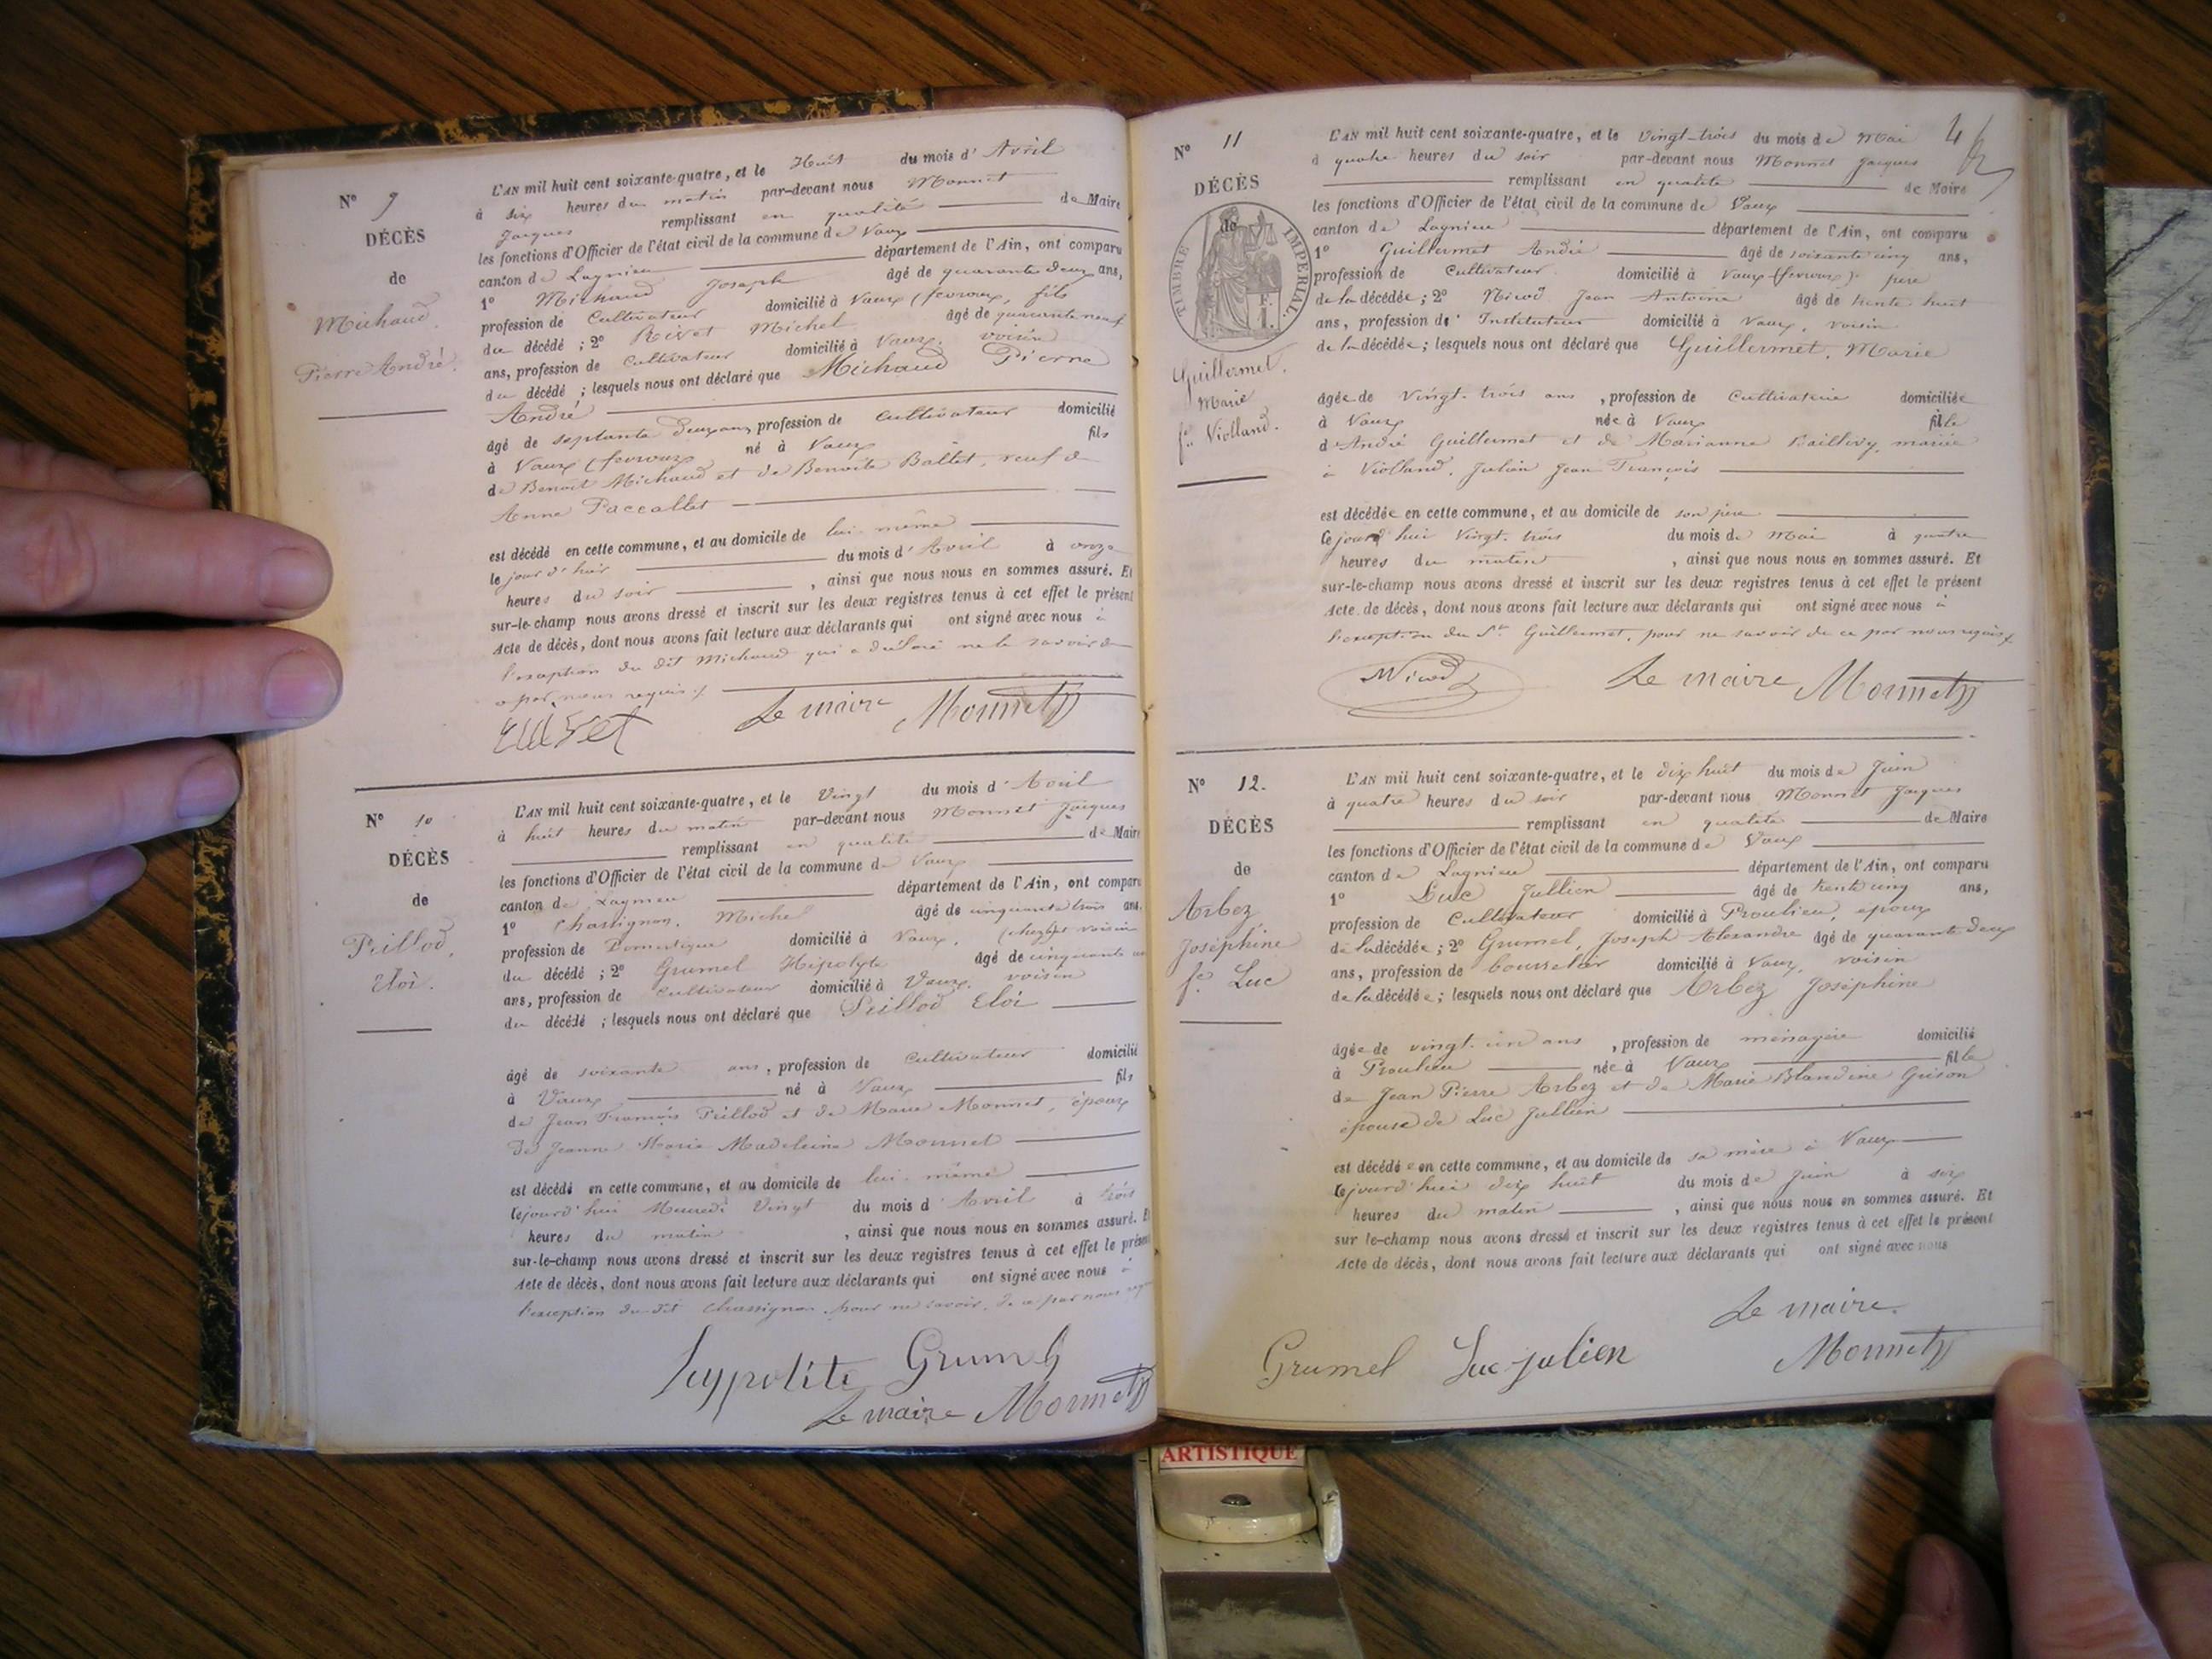 N° 9
DÉCÈS
de
Michaud
Pierre André.
L'AN mil huit cent soixante-quatre, et le Huit du mois d' Avril
à six heures du matin par-devant nous Monnet
Jacques remplissant en qualité de Maire
les fonctions d'Officier de l'état civil de la commune de Vaux
canton de Lagnieu département de l'Ain, ont comparu
1° Michaud Joseph âgé de quarante deux ans,
profession de Cultivateur domicilié à Vaux (fevroux, fils
du décédé ; 2° Rivet Michel âgé de quarante neuf
ans, profession de Cultivateur domicilié à Vaux, voisin
du décédé ; lesquels nous ont déclaré que Michaud Pierre
André
âgé de septante deux ans, profession de Cultivateur domicilié
à Vaux (fevroux né à Vaux fils
de Benoit Michaud et de Benoite Ballet, veuf de
Anne Paccallet
est décédé en cette commune, et au domicile de lui-même
le jour d'hier du mois d' Avril à onze
heures du soir , ainsi que nous nous en sommes assuré. Et
sur-le-champ nous avons dressé et inscrit sur les deux registres tenus à cet effet le présent
Acte de décès, dont nous avons fait lecture aux déclarants qui ont signé avec nous à
l'exception du dit Michaud qui a déclaré ne le savoir de
ce par nous requis
Rivet Le maire Monnet
N° 10
DÉCÈS
de
Pillod,
Eloi.
L'AN mil huit cent soixante-quatre, et le Vingt du mois d' Avril
à huit heures du matin par-devant nous Monnet Jacques
remplissant en qualité de Maire
les fonctions d'Officier de l'état civil de la commune de Vaux
canton de Lagnieu département de l'Ain, ont comparu
1° Chassignon, Michel âgé de cinquante trois ans,
profession de Domestique domicilié à Vaux, voisin
du décédé ; 2° Grumel Hipolyte âgé de cinquante un
ans, profession de Cultivateur domicilié à Vaux, voisin
du décédé ; lesquels nous ont déclaré que Pillod Eloi
âgé de soixante ans, profession de Cultivateur domicilié
à Vaux né à Vaux fils
de Jean François Pillod et de Marie Monnet, époux
de Jeanne Marie Madeleine Monnet
est décédé en cette commune, et au domicile de lui-même
cejourd'hui Mercredi Vingt du mois d' Avril à trois
heures du matin , ainsi que nous nous en sommes assuré. Et
sur-le-champ nous avons dressé et inscrit sur les deux registres tenus à cet effet le présent
Acte de décès, dont nous avons fait lecture aux déclarants qui ont signé avec nous à
l'exception du dit Chassignon pour ne savoir, de ce par nous
hyppolite Grumel
Le maire Monnet
N° 11
DÉCÈS
de
TIMBRE IMPERIAL.
Guillermet,
Marie
fe. Violland.
L'AN mil huit cent soixante-quatre, et le Vingt-trois du mois de Mai
à quatre heures du soir par-devant nous Monnet Jacques
remplissant en qualité de Maire
les fonctions d'Officier de l'état civil de la commune de Vaux
canton de Lagnieu département de l'Ain, ont comparu
1° Guillermet André âgé de soixante cinq ans,
profession de Cultivateur domicilié à Vaux (fevroux) père
de la décédée ; 2° Nicod Jean Antoine âgé de trente-huit
ans, profession d' Instituteur domicilié à Vaux, voisin
de la décédée ; lesquels nous ont déclaré que Guillermet, Marie
âgée de vingt-trois ans , profession de Cultivatrice domiciliée
à Vaux née à Vaux fille
d' André Guillermet et de Marianne mariée
à Violland, Julien Jean François
est décédée en cette commune, et au domicile de son père
Cejourd'hui Vingt-trois du mois de Mai à quatre
heures du matin , ainsi que nous nous en sommes assuré. Et
sur-le-champ nous avons dressé et inscrit sur les deux registres tenus à cet effet le présent
Acte de décès, dont nous avons fait lecture aux déclarants qui ont signé avec nous à
l'exception du Sr Guillermet, pour ne savoir de ce par nous requis
Nicod Le maire Monnet
N° 12.
DÉCÈS
de
Arbez
Joséphine
fe. Luc
L'AN mil huit cent soixante-quatre, et le dix huit du mois de Juin
à quatre heures du soir par-devant nous Monnet Jacques
remplissant en qualité de Maire
les fonctions d'Officier de l'état civil de la commune de Vaux
canton de Lagnieu département de l'Ain, ont comparu
1° Luc Jullien âgé de trente cinq ans,
profession de Cultivateur domicilié à Proulieu, époux
de la décédée ; 2° Grumel, Joseph Alexandre âgé de quarante deux
ans, profession de bourrelier domicilié à Vaux, voisin
de la décédée ; lesquels nous ont déclaré que Arbez Joséphine
âgée de vingt-un ans , profession de ménagère domicilié
à Proulieu née à Vaux fille
de Jean Pierre Arbez et de Marie Blandine Grison
épouse de Luc Jullien
est décédée en cette commune, et au domicile de sa mère à Vaux
cejourd'hui dix huit du mois de Juin à six
heures du matin , ainsi que nous nous en sommes assuré. Et
sur le-champ nous avons dressé et inscrit sur les deux registres tenus à cet effet le présent
Acte de décès, dont nous avons fait lecture aux déclarants qui ont signé avec nous
Le maire.
Grumel Luc julien Monnet
ARTISTIQUE